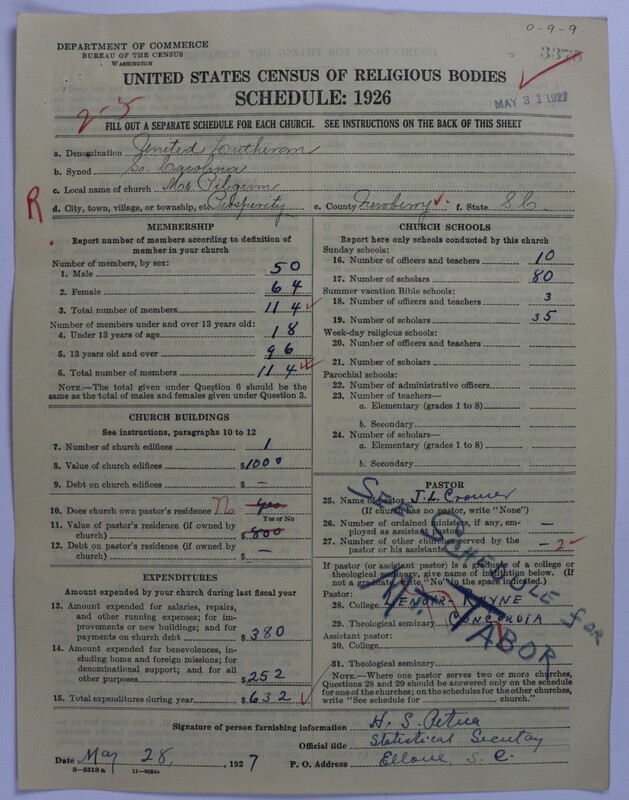 0-9-9
DEPARTMENT OF COMMERCE
BUREAU OF THE CENSUS
WASHINGTON
3375
UNITED STATES CENSUS OF RELIGIOUS BODIES
SCHEDULE: 1926
MAY 31 1927
2-5
FILL OUT A SEPARATE SCHEDULE FOR EACH CHURCH. SEE INSTRUCTIONS ON THE BACK OF THIS SHEET
a. Denomination United Lutheran
b. Synod So. Carolina
c. Local name of church Mt. Pilgrim
R
d. City, town, village, or township, etc. Prosperity e. County Newberry f. State S C
MEMBERSHIP
Report number of members according to definition of
member in your church
Number of members, by sex:
1. Male 50
2. Female 64
3. Total number of members 114
Number of members under and over 13 years old:
4. Under 13 years of age 18
5. 13 years old and over 96
6. Total number of members 114
NOTE.—The total given under Question 6 should be the
same as the total of males and females given under Question 3.
CHURCH BUILDINGS
See instructions, paragraphs 10 to 12
7. Number of church edifices 1
8. Value of church edifices $1000
9. Debt on church edifices $ —
10. Does church own pastor's residence No yes
Yes or No
11. Value of pastor's residence (if owned by
church) $800
12. Debt on pastor's residence (if owned by
church) $ —
EXPENDITURES
Amount expended by your church during last fiscal year
13. Amount expended for salaries, repairs,
and other running expenses; for im-
provements or new buildings; and for
payments on church debt $380
14. Amount expended for benevolences, in-
cluding home and foreign missions; for
denominational support; and for all
other purposes $252
15. Total expenditures during year $632
CHURCH SCHOOLS
Report here only schools conducted by this church
Sunday schools:
16. Number of officers and teachers 10
17. Number of scholars 80
Summer vacation Bible schools:
18. Number of officers and teachers 3
19. Number of scholars 35
Week-day religious schools:
20. Number of officers and teachers
21. Number of scholars
Parochial schools:
22. Number of administrative officers
23. Number of teachers—
a. Elementary (grades 1 to 8)
b. Secondary
24. Number of scholars—
a. Elementary (grades 1 to 8)
b. Secondary
PASTOR
25. Name of pastor J. L. Cromer
(If church has no pastor, write "None")
26. Number of ordained ministers, if any, em-
ployed as assistant pastors —
27. Number of other churches served by the
pastor or his assistants — 2
If pastor (or assistant pastor) is a graduate of a college or
theological seminary, give name of institution below. (If
not a graduate, write "No" in the space indicated.)
Pastor:
28. College LENOIR-RHYNE
29. Theological seminary CONCORDIA
Assistant pastor:
30. College
31. Theological seminary
NOTE.—Where one pastor serves two or more churches,
Questions 28 and 29 should be answered only on the schedule
for one of the churches; on the schedules for the other churches,
write "See schedule for ______ church."
SEE SCHEDULE for
MT. TABOR
Signature of person furnishing information H. S. Petrea
Official title Statistical Secretary
Date May 28, 1927 P. O. Address Ellore, S. C.
8-5518a 11-9084a